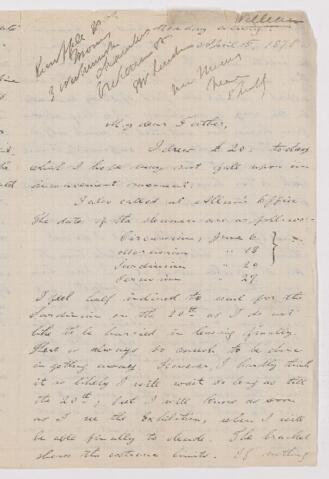 William
Monday evening
April 15, 1878
My dear Father,
I drew £20 today
which I hope may not fall upon an
inconvenient moment.
I also called at Allan's Office
The dates of the steamers are as follows—
Circassian, June 6
Moravian " 13
Sardinian " 20
Peruvian " 27
I feel half inclined to wait for the
Sardinian on the 20th as I do not
like to be hurried in leaving finally.
There is always so much to be done
in getting away. However, I hardly think
it so likely I will wait so long as till
the 20th, but I will know as soon
as I see the Exhibition, when I will
be able finally to decide. The bracket
shows the extreme limits. If nothing